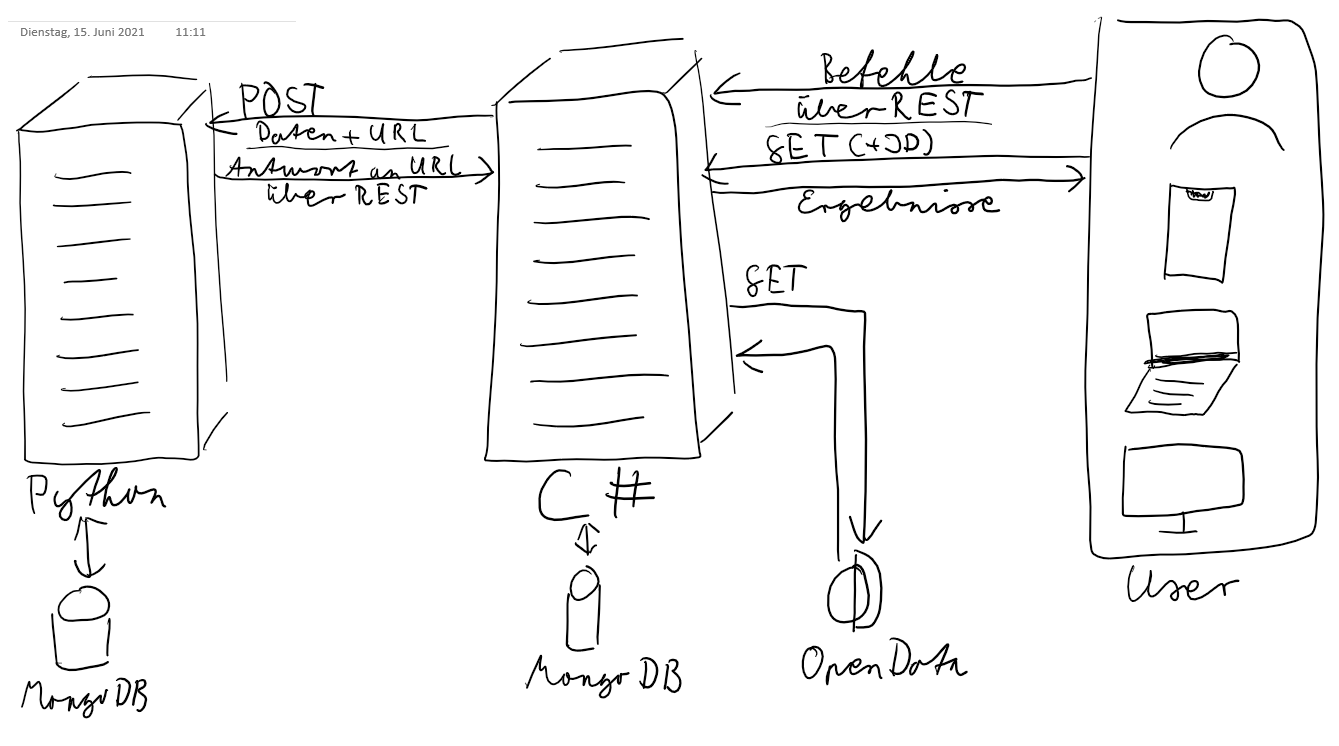 Dienstag, 15. Juni 2021 11:11
POST
Daten + URL
Antwort an URL
über REST
Befehle
über REST
GET (+ID)
Ergebnisse
GET
Python
C#
User
MongoDB
MongoDB
OpenData